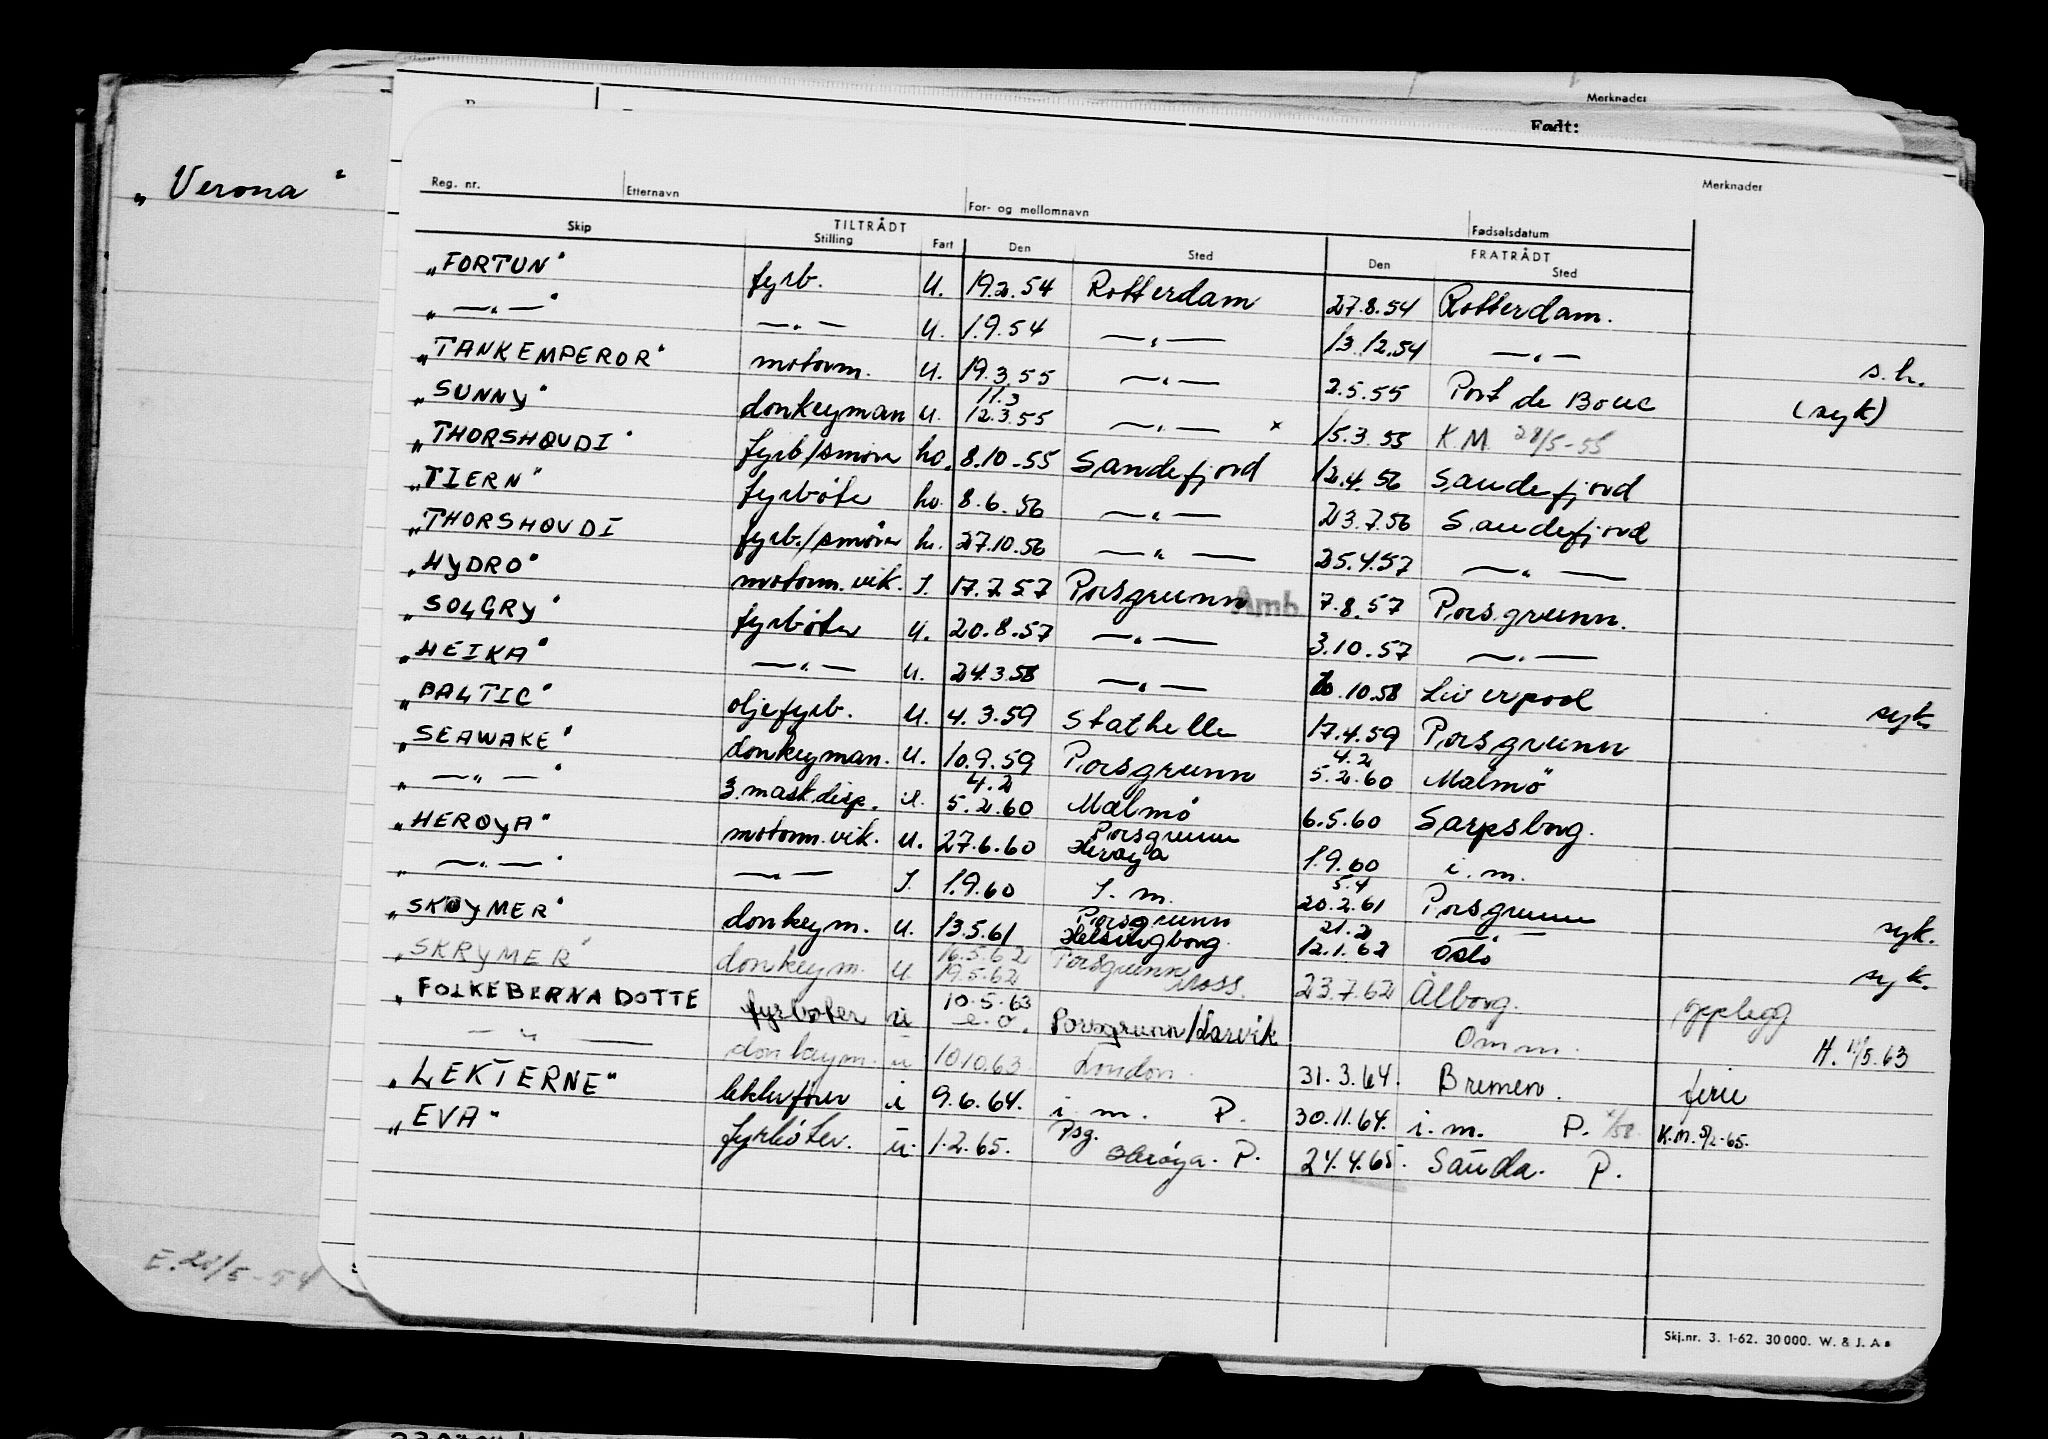 Merknader
Født:
„Verona"
Reg. nr. Etternavn For- og mellomnavn Fødselsdatum Merknader
TILTRÅDT FRATRÅDT
Skip Stilling Fart Den Sted Den Sted
„FORTUN" fyrb. U. 19.2.54 Rotterdam 27.8.54 Rotterdam.
„—„—" —„— U. 1.9.54 —„— 13.12.54 —„— s.h.
„TANKEMPEROR" motorm. U. 19.3.55 —„— 2.5.55 Port de Bouc (syk)
11.3
„SUNNY" donkeyman U. 12.3.55 —„— x 15.3.55 K.M. 28/5-55
„THORSHØVDI" fyrb/smører ho. 8.10.55 Sandefjord 12.4.56 Sandefjord
„TIERN" fyrbøter ho. 8.6.56 —„— 23.7.56 Sandefjord
„THORSHØVDI fyrb./smører h. 27.10.56 —„— 25.4.57 —„—
„HYDRO" motorm. vik. I. 17.7.57 Porsgrunn Amb. 7.8.57 Porsgrunn.
„SOLGRY" fyrbøter U. 20.8.57 —„— 3.10.57 —„—
„HEIKA" —„— U. 24.3.58 —„— 10.58 Liverpool syk
„BALTIC" oljefyrb. U. 4.3.59 Stathelle 17.4.59 Porsgrunn
4.2
„SEAWAKE" donkeyman. U. 10.9.59 Porsgrunn 5.2.60 Malmö
4.2
„—„—" 3. mask. disp. U. 5.2.60 Malmö 6.5.60 Sarpsborg.
Porsgrunn
„HERØYA" motorm. vik. U. 27.6.60 Herøya 1.9.60 i.m.
5.4
„—„—" —„— I. 1.9.60 I.m. 20.2.61 Porsgrunn syk.
Porsgrunn 21.2
„SKRYMER" donkeym. U. 13.5.61 Helsingborg. 12.1.62 Oslo syk.
16.5.62
„SKRYMER" donkeym. U. 19.5.62 Porsgrunn Moss. 23.7.62 Ålborg. opplegg
10.5.63
„FOLKEBERNADOTTE fyrbøter u e.o. Porsgrunn/Larvik Omm. H. 11/5.63
—„— donkeym. u 10.10.63 London. 31.3.64. Bremen. ferie
„LEKTERNE" lekterfører i 9.6.64. i.m. P. 30.11.64. i.m. P. K.M. 5/2-65.
Psg.
„EVA" fyrbøter. u. 1.2.65. Herøya. P. 24.4.65. Sauda. P.
E. 28/5-54
Skj.nr. 3. 1-62. 30000. W. & J. A s